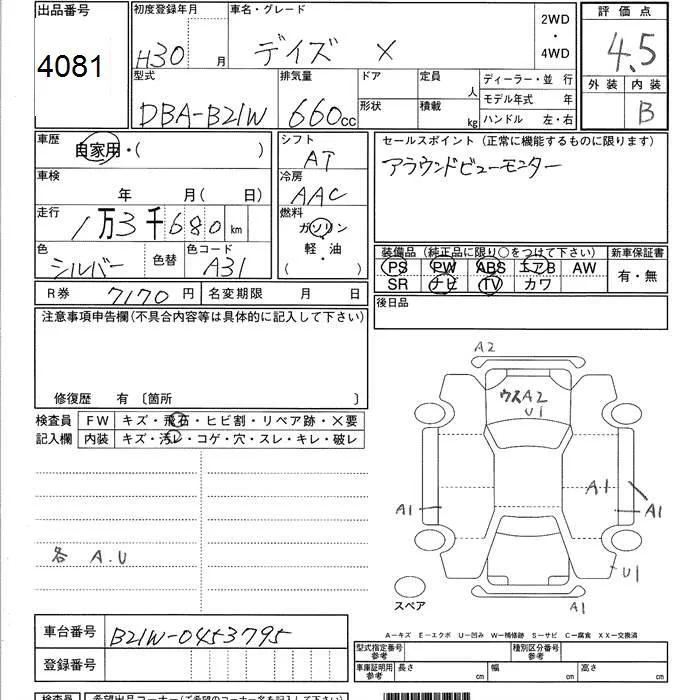 出品番号
4081
初度登録年月
H30 月
車名・グレード
デイズ X
2WD
・
4WD
評価点
4.5
外装 内装
B
型式
DBA-B21W
排気量
660cc
ドア
形状
定員
人
積載
kg
ディーラー・並 行
モデル年式 年
ハンドル 左・右
車歴
自家用・( )
車検
年 月( 日)
走行
1万3千680 km
色
シルバー
色替
色コード
A31
シフト
AT
冷房
AAC
燃料
ガソリン
軽・油
( )
セールスポイント (正常に機能するものに限ります)
アラウンドビューモニター
装備品 (純正品に限り○をつけて下さい)
新車保証書
PS PW ABS エアB AW
SR ナビ TV カワ
有・無
後日品
R券 7170円
名変期限 月 日
注意事項申告欄(不具合内容等は具体的に記入して下さい)
修復歴 有 〔箇所 〕
検査員
記入欄
FW キズ・飛石・ヒビ割・リペア跡・×要
内装 キズ・汚レ・コゲ・穴・スレ・キレ・破レ
各 A.U
A2
ウスA2
U1
A1
A1
A1
U1
A1
スペア
車台番号
B21W-0453795
登録番号
A－キズ E－エクボ U－凹み W－補修跡 S－サビ C－腐食 XX－交換済
型式指定番号
参考
種別区分番号
参考
車庫証明用
参考
長さ cm
幅 cm
高さ cm
検査員
希望出品コーナー(ご希望のコーナー名を記入して下さい)